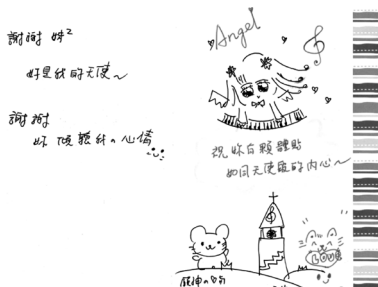 謝謝 妹²
妳是我的天使～
謝謝
妳傾聽我の心情
Angel
祝妳有顆體貼
如同天使般的內心～